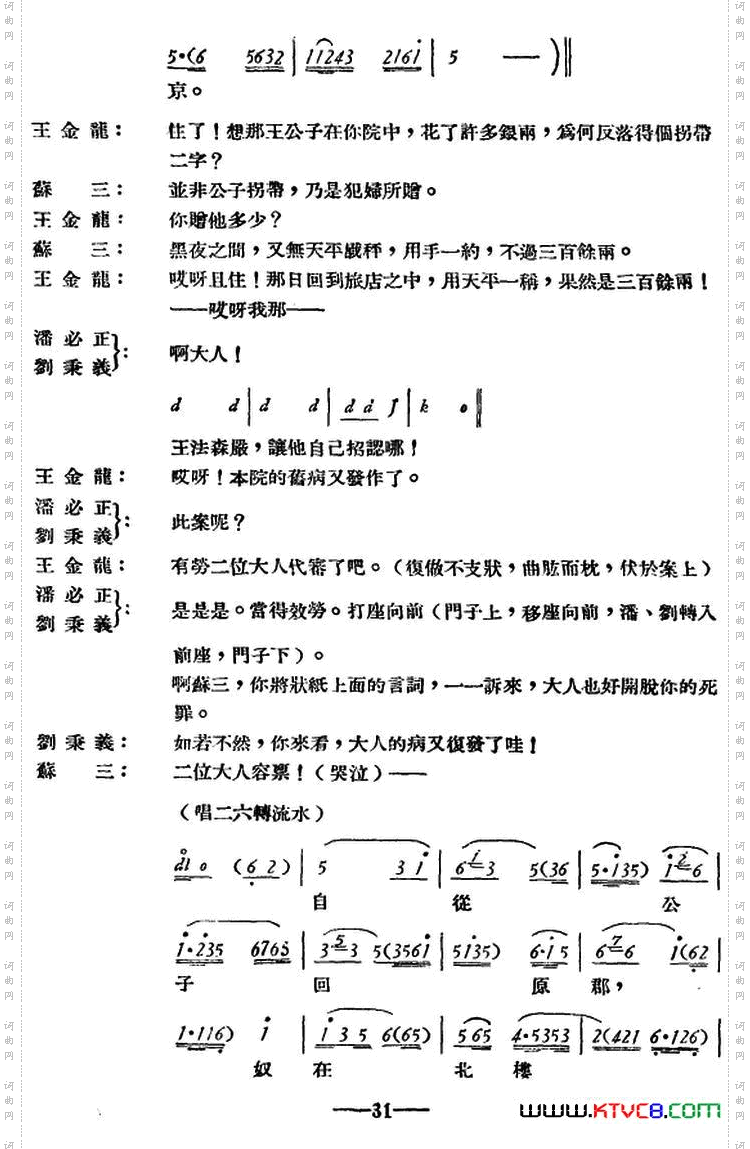 5·(6 5632 | 11243 2161 | 5 — )‖
京。
王金龍： 住了！想那王公子在你院中，花了許多銀兩，爲何反落得個拐帶
二字？
蘇 三： 並非公子拐帶，乃是犯婦所贈。
王金龍： 你贈他多少？
蘇 三： 黑夜之間，又無天平戥秤，用手一約，不過三百餘兩。
王金龍： 哎呀且住！那日回到旅店之中，用天平一稱，果然是三百餘兩！
——哎呀我那——
潘必正
劉秉義}： 啊大人！
d d | d d | d d J | k o ‖
王法森嚴，讓他自己招認哪！
王金龍： 哎呀！本院的舊病又發作了。
潘必正
劉秉義}： 此案呢？
王金龍： 有勞二位大人代審了吧。（復做不支狀，曲肱而枕，伏於案上）
潘必正
劉秉義}： 是是是。當得效勞。打座向前（門子上，移座向前，潘、劉轉入
前座，門子下）。
啊蘇三，你將狀紙上面的言詞，一一訴來，大人也好開脫你的死
罪。
劉秉義： 如若不然，你來看，大人的病又復發了哇！
蘇 三： 二位大人容禀！（哭泣）——
（唱二六轉流水）
dl o (6 2) | 5 3 1 | 6 i 3 5(36 | 5·135) 1 2 6 |
自 從 公
1·235 6765 | 3 5 3 5(3561 | 5135) 6·15 | 6 7 6 1(62 |
子 回 原 郡，
1·116) 1 | 1 3 5 6(65) | 565 4·5353 | 2(421 6·126) |
奴 在 北 樓
——31——
WWW.KTVC8.COM
词曲网